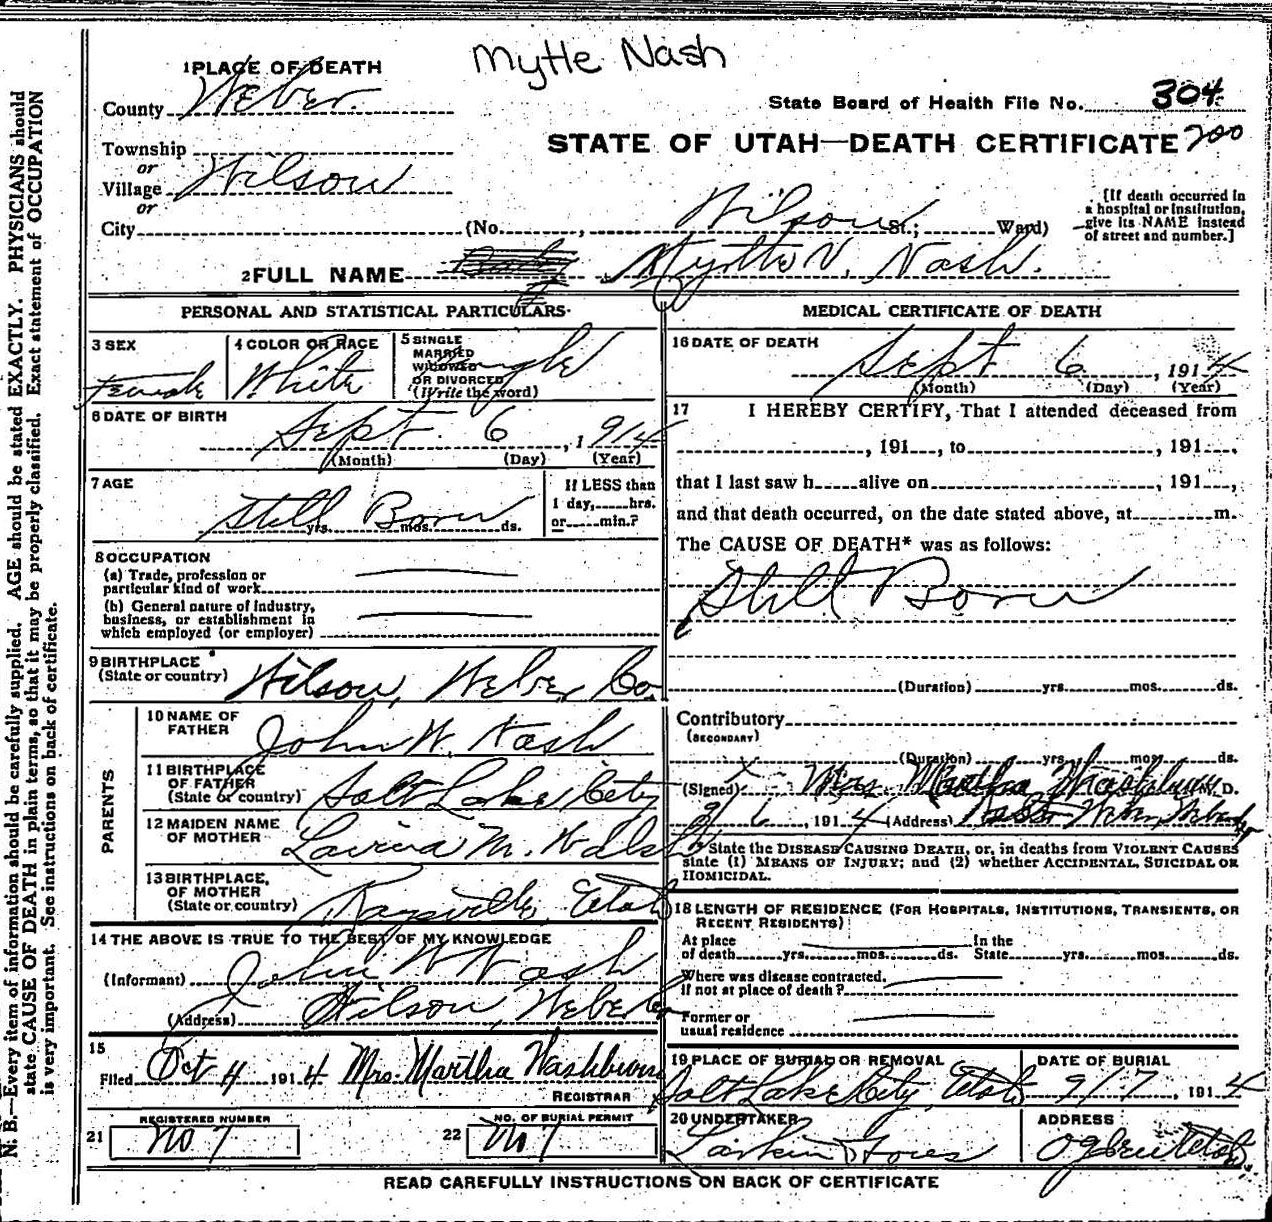 Mytle Nash
1 PLACE OF DEATH
County Weber.
State Board of Health File No. 304
Township
STATE OF UTAH—DEATH CERTIFICATE 200
or
Village Wilson
or
City (No. , Wilson St.; Ward)
[If death occurred in a hospital or institution, give its NAME instead of street and number.]
2 FULL NAME Myrtle V. Nash.
N. B.—Every item of information should be carefully supplied. AGE should be stated EXACTLY. PHYSICIANS should
state CAUSE OF DEATH in plain terms, so that it may be properly classified. Exact statement of OCCUPATION
is very important. See instructions on back of certificate.
PERSONAL AND STATISTICAL PARTICULARS
3 SEX
Female
4 COLOR OR RACE
White
5 SINGLE
MARRIED
WIDOWED
OR DIVORCED
(Write the word)
Single
6 DATE OF BIRTH
Sept. 6, 1914
(Month) (Day) (Year)
7 AGE
Still Born
yrs. mos. ds.
If LESS than
1 day, hrs.
or min.?
8 OCCUPATION
(a) Trade, profession or
particular kind of work
(b) General nature of industry,
business, or establishment in
which employed (or employer)
9 BIRTHPLACE
(State or country) Wilson, Weber Co.
PARENTS
10 NAME OF
FATHER John W. Nash
11 BIRTHPLACE
OF FATHER
(State or country) Salt Lake City
12 MAIDEN NAME
OF MOTHER M. Walsh
13 BIRTHPLACE,
OF MOTHER
(State or country) Kaysville, Utah
14 THE ABOVE IS TRUE TO THE BEST OF MY KNOWLEDGE
(Informant) John W Nash
(Address) Wilson, Weber Co
15
Filed Oct 4 1914 Mrs. Martha Washburn
REGISTRAR
REGISTERED NUMBER
21 No 7
NO. OF BURIAL PERMIT
22 No 7
MEDICAL CERTIFICATE OF DEATH
16 DATE OF DEATH
Sept 6, 1914
(Month) (Day) (Year)
17 I HEREBY CERTIFY, That I attended deceased from
, 191 , to , 191 ,
that I last saw h alive on , 191 ,
and that death occurred, on the date stated above, at m.
The CAUSE OF DEATH* was as follows:
Still Born
(Duration) yrs. mos. ds.
Contributory
(SECONDARY)
(Duration) yrs. mos. ds.
(Signed) Mrs. Martha Washburn M. D.
9/6, 1914 (Address)
State the DISEASE CAUSING DEATH, or, in deaths from VIOLENT CAUSES
state (1) MEANS OF INJURY; and (2) whether ACCIDENTAL, SUICIDAL OR
HOMICIDAL.
18 LENGTH OF RESIDENCE (FOR HOSPITALS, INSTITUTIONS, TRANSIENTS, OR
RECENT RESIDENTS)
At place In the
of death yrs. mos. ds. State yrs. mos. ds.
Where was disease contracted,
If not at place of death?
Former or
usual residence
19 PLACE OF BURIAL OR REMOVAL
Salt Lake City, Utah
DATE OF BURIAL
9/7, 1914
20 UNDERTAKER
Larkin & Sons
ADDRESS
Ogden Utah
READ CAREFULLY INSTRUCTIONS ON BACK OF CERTIFICATE